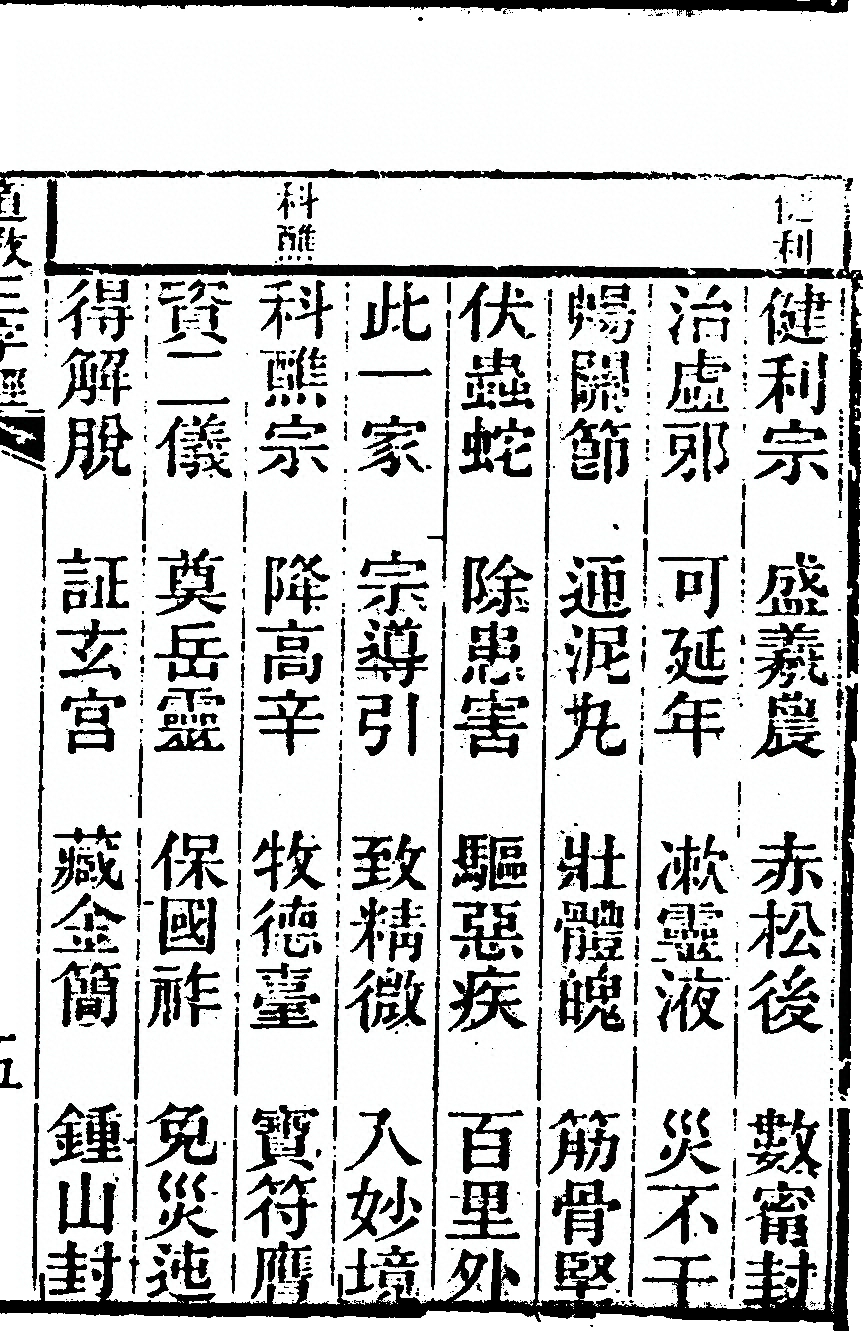 健利
健利宗　盛羲農　赤松後　數甯封
治虛邪　可延年　漱靈液　災不干
暢關節　通泥丸　壯體魄　筋骨堅
伏蟲蛇　除患害　驅惡疾　百里外
此一家　宗導引　致精微　入妙境
科醮
科醮宗　降高辛　牧德臺　寶符膺
資二儀　奠岳靈　保國祚　免災迍
得解脫　証玄宮　藏金簡　鍾山封
道教三字經
五